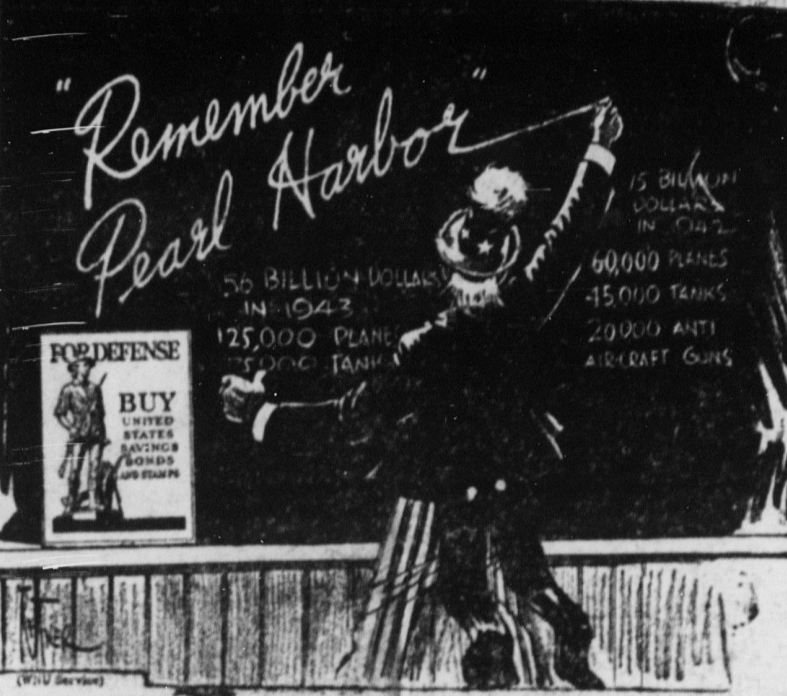 "Remember
Pearl Harbor"
56 BILLION DOLLARS
IN 1943
125,000 PLANES
75000 TANK
15 BILLION
DOLLARS
IN 1942
60,000 PLANES
45,000 TANKS
20000 ANTI
AIRCRAFT GUNS
FOR DEFENSE
BUY
UNITED
STATES
SAVINGS
BONDS
AND STAMPS
(WNU Service)